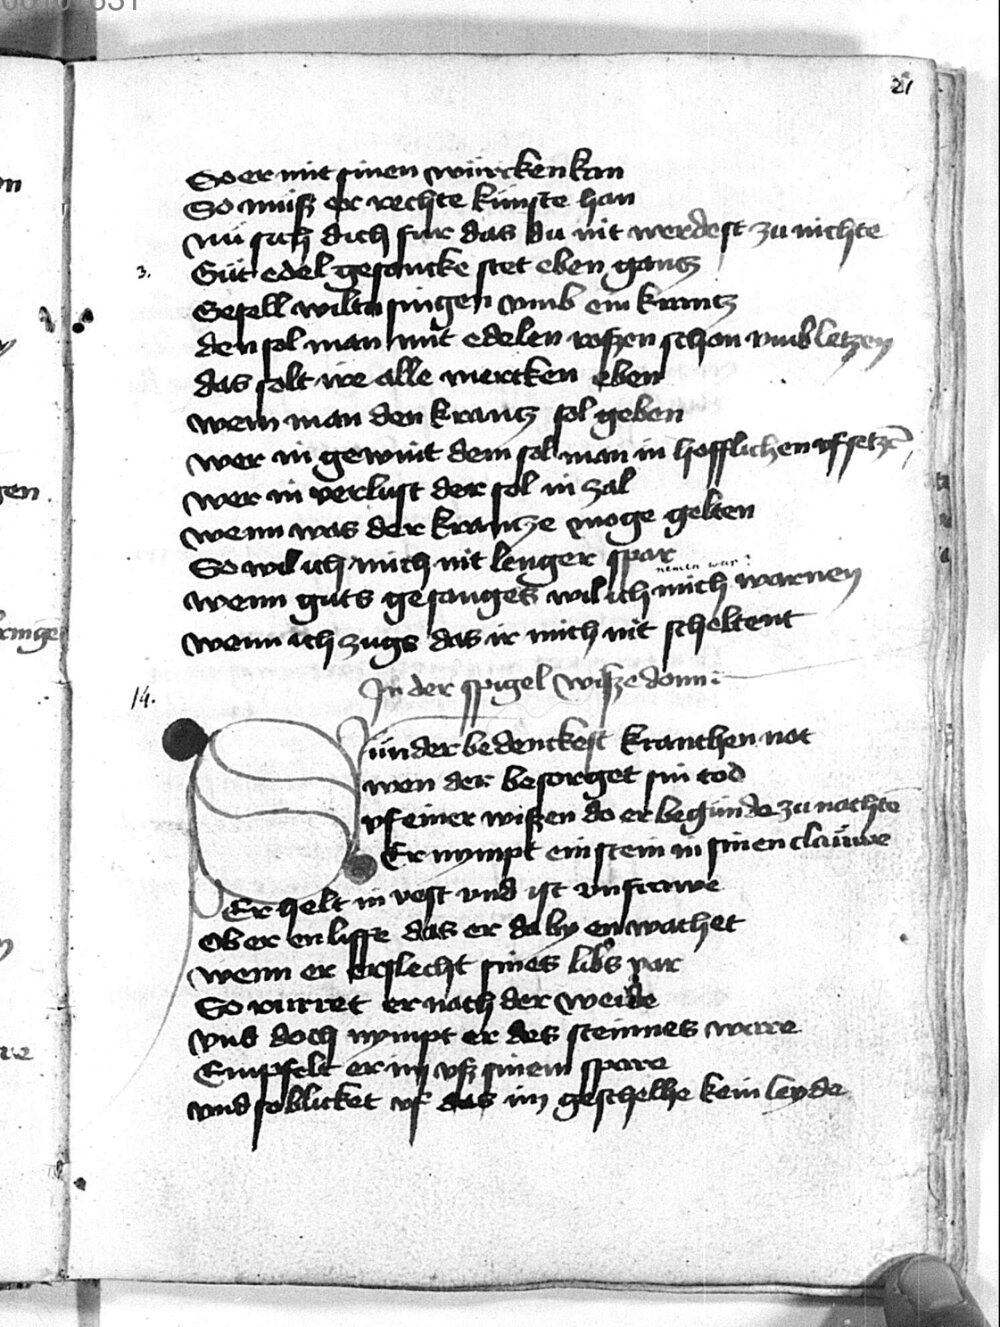 21
So er mit sinen würcken kan
So muß er rechte künste han
nu sich dich für das du nit werdest zu nichte
3. Gut edel gesancke stet eben gantz
Gesell wiltu singen vmb ein krantz
den sol man mit edelen roßen schon vmbletzen
das solt ir alle mercken eben
wem man den krantz sol geben
wer in gewint dem sol man in hofflichen vfsetzen
wer in verlust der sol in zal
wenn was der krantze moge gelten
So wil ich mich nit lenger spar
nemen war
wenn guts gesanges wil ich mich warnen
wenn ich zugs das ir mich nit scheltent
In der spigel wiße donn
14.
Sünder bedenckest kranchen not
wen der besorget sin tod
vf einer wißen do er begunde zu nachte
Er nympt ein stein in sinen clauwe
Er helt in vest vnd ist vnfrauwe
Ob er enliffe das er da by enwachet
wenn er erslecht sines libs var
So rurret er nach der weide
vnd doch nympt er des steinnes ware
Empfelt er im vß sinem spare
vnd so blicket vf das im geschehe kein leyde